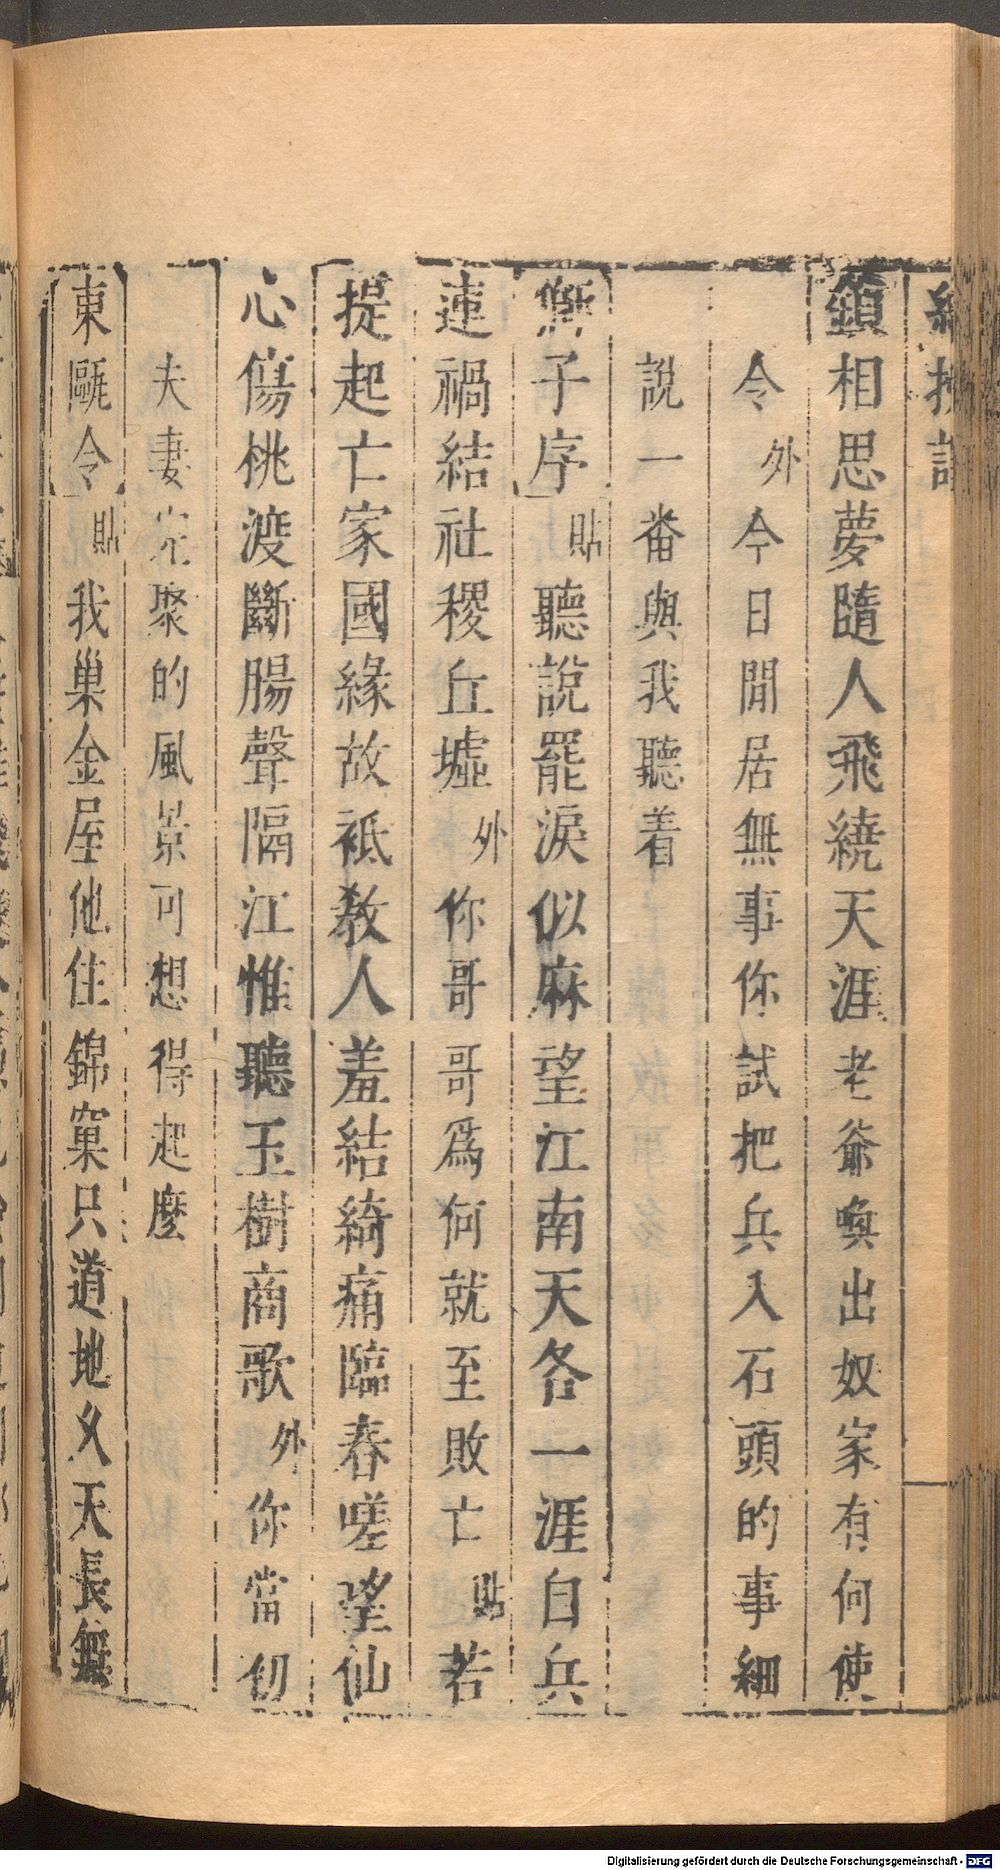 鎖相思夢隨人飛繞天涯老爺喚出奴家有何使
令外今日閒居無事你試把兵入石頭的事細
說一番與我聽着
獅子序貼聽說罷淚似麻望江南天各一涯自兵
連禍結社稷丘墟外你哥哥為何就至敗亡貼若
提起亡家國緣故袛教人羞結綺痛臨春嗟望仙
心傷桃渡斷腸聲隔江惟聽玉樹商歌外你當初
夫妻完聚的風景可想得起麼
東甌令貼我巢金屋他住錦窠只道地久天長無
Digitalisierung gefördert durch die Deutsche Forschungsgemeinschaft - DFG